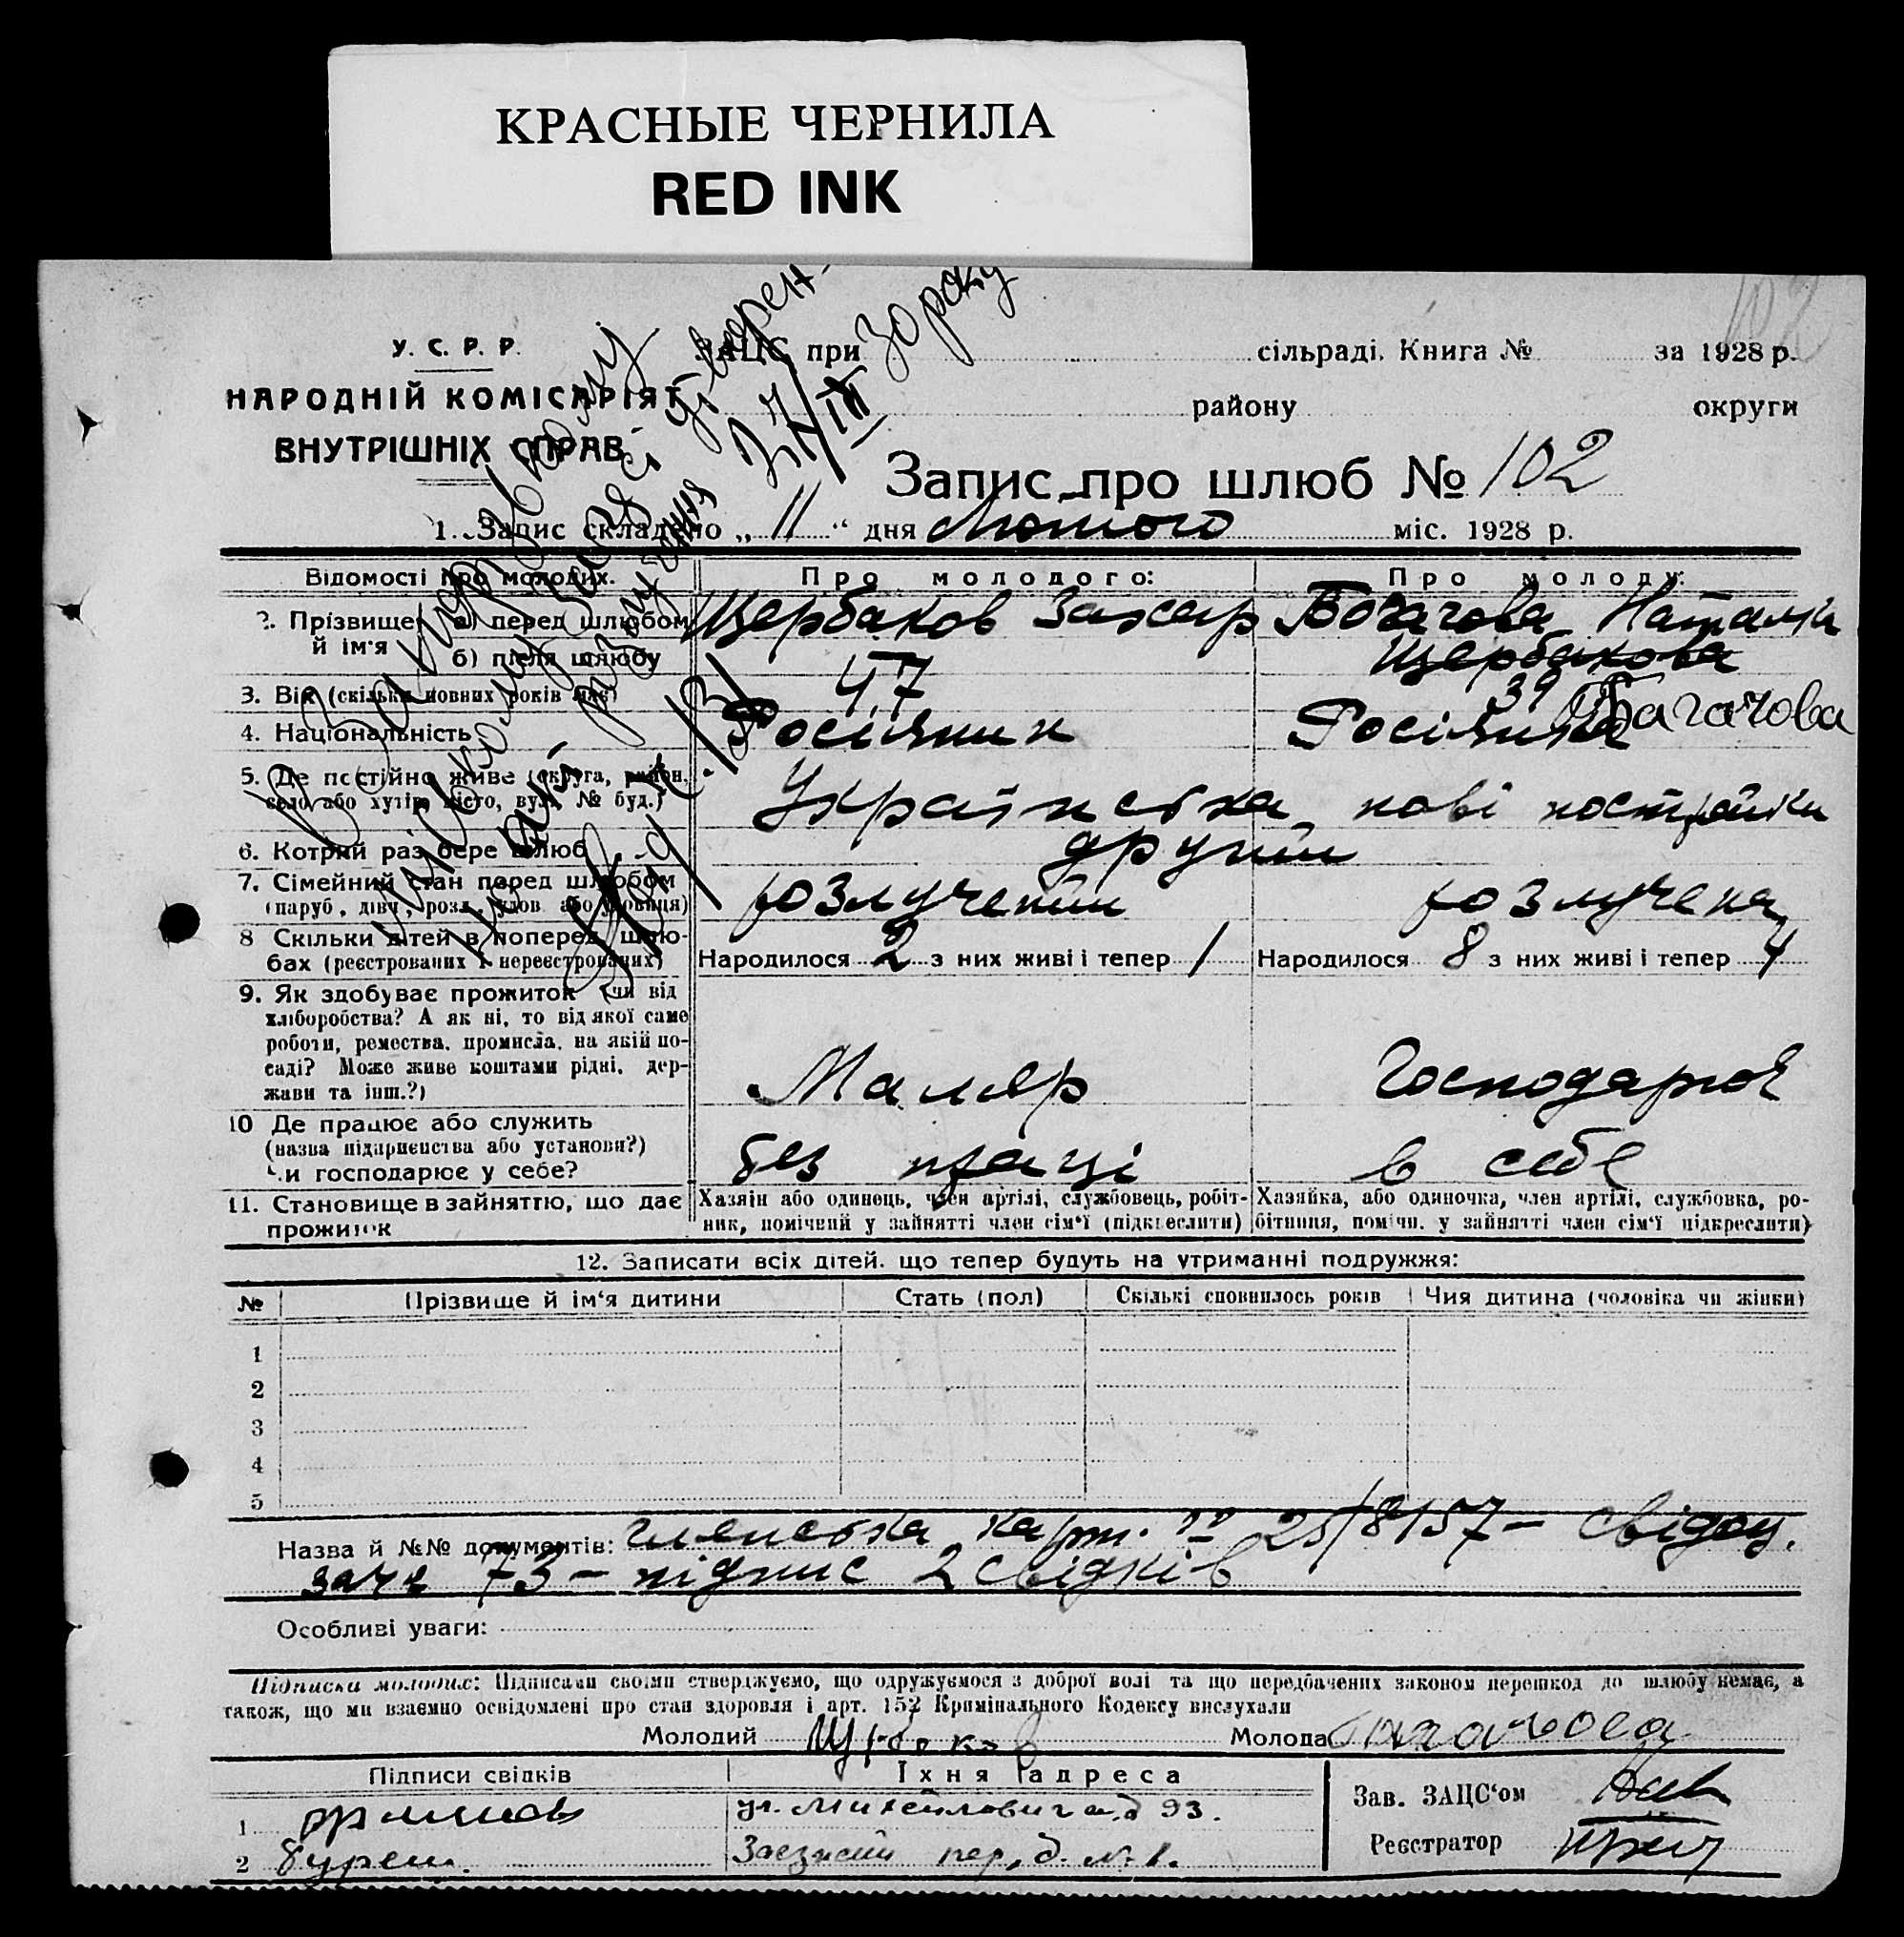 КРАСНЫЕ ЧЕРНИЛА
RED INK
102
У. С. Р. Р.
НАРОДНІЙ КОМІСАРІЯТ
ВНУТРІШНІХ СПРАВ
ЗАЦС при сільраді. Книга № за 1928 р.
району округи
Запис про шлюб № 102
1. Запис складено „ 11 “ дня Лютого міс. 1928 р.
27/IX 30 року
Відомості про молодих. Про молодого: Про молоду:
2. Прізвище й ім'я а) перед шлюбом Щербаков Захар Богачова Наталія
б) після шлюбу Щербакова
Багачова
3. Вік (скільки повних років має) 47 39
4. Національність Росіянин Росіянка
5. Де постійно живе (округа, район, село або хутір, місто, вул. № буд.) Українська нові постройки
6. Котрий раз бере шлюб другий
7. Сімейний стан перед шлюбом розлучений розлучена
(паруб., дівч., розл., удов. або удовиця)
8 Скільки дітей в поперед. шлю-
бах (реєстрованих і нереєстрованих) Народилося 2 з них живі і тепер 1 Народилося 8 з них живі і тепер 4
9. Як здобуває прожиток (чи від
хліборобства? А як ні, то від якої саме
роботи, ремества, промисла, на якій по-
саді? Може живе коштами рідні, дер-
жави та інш.?) Маляр Господарює
10 Де працює або служить
(назва підприємства або установи?)
Чи господарює у себе? без праці в себе
11. Становище в зайняттю, що дає
прожиток
Хазяїн або одинець, член артілі, службовець, робіт-
ник, помічний у зайнятті член сім'ї (підкреслити)
Хазяйка, або одиночка, член артілі, службовка, ро-
бітниця, помічн. у зайнятті член сім'ї підкреслити)
12. Записати всіх дітей, що тепер будуть на утриманні подружжя:
№ Прізвище й ім'я дитини Стать (пол) Скількі сповнилось років Чия дитина (чоловіка чи жінки)
1
2
3
4
5
Назва й №№ документів: членська карт. № 25/8157 – свідоц.
73 – підпис 2 свідків
Особливі уваги:
Підписка молодих: Підписами своїми стверджуємо, що одружуємося з доброї волі та що передбачених законом перешкод до шлюбу немає, а
також, що ми взаємно освідомлені про стан здоровля і арт. 152 Кримінального Кодексу вислухали
Молодий Молода
Підписи свідків Їхня адреса
1 ул. Михайловича, д 93.
2 Заезжий пер, д. № 1.
Зав. ЗАЦС'ом
Реєстратор